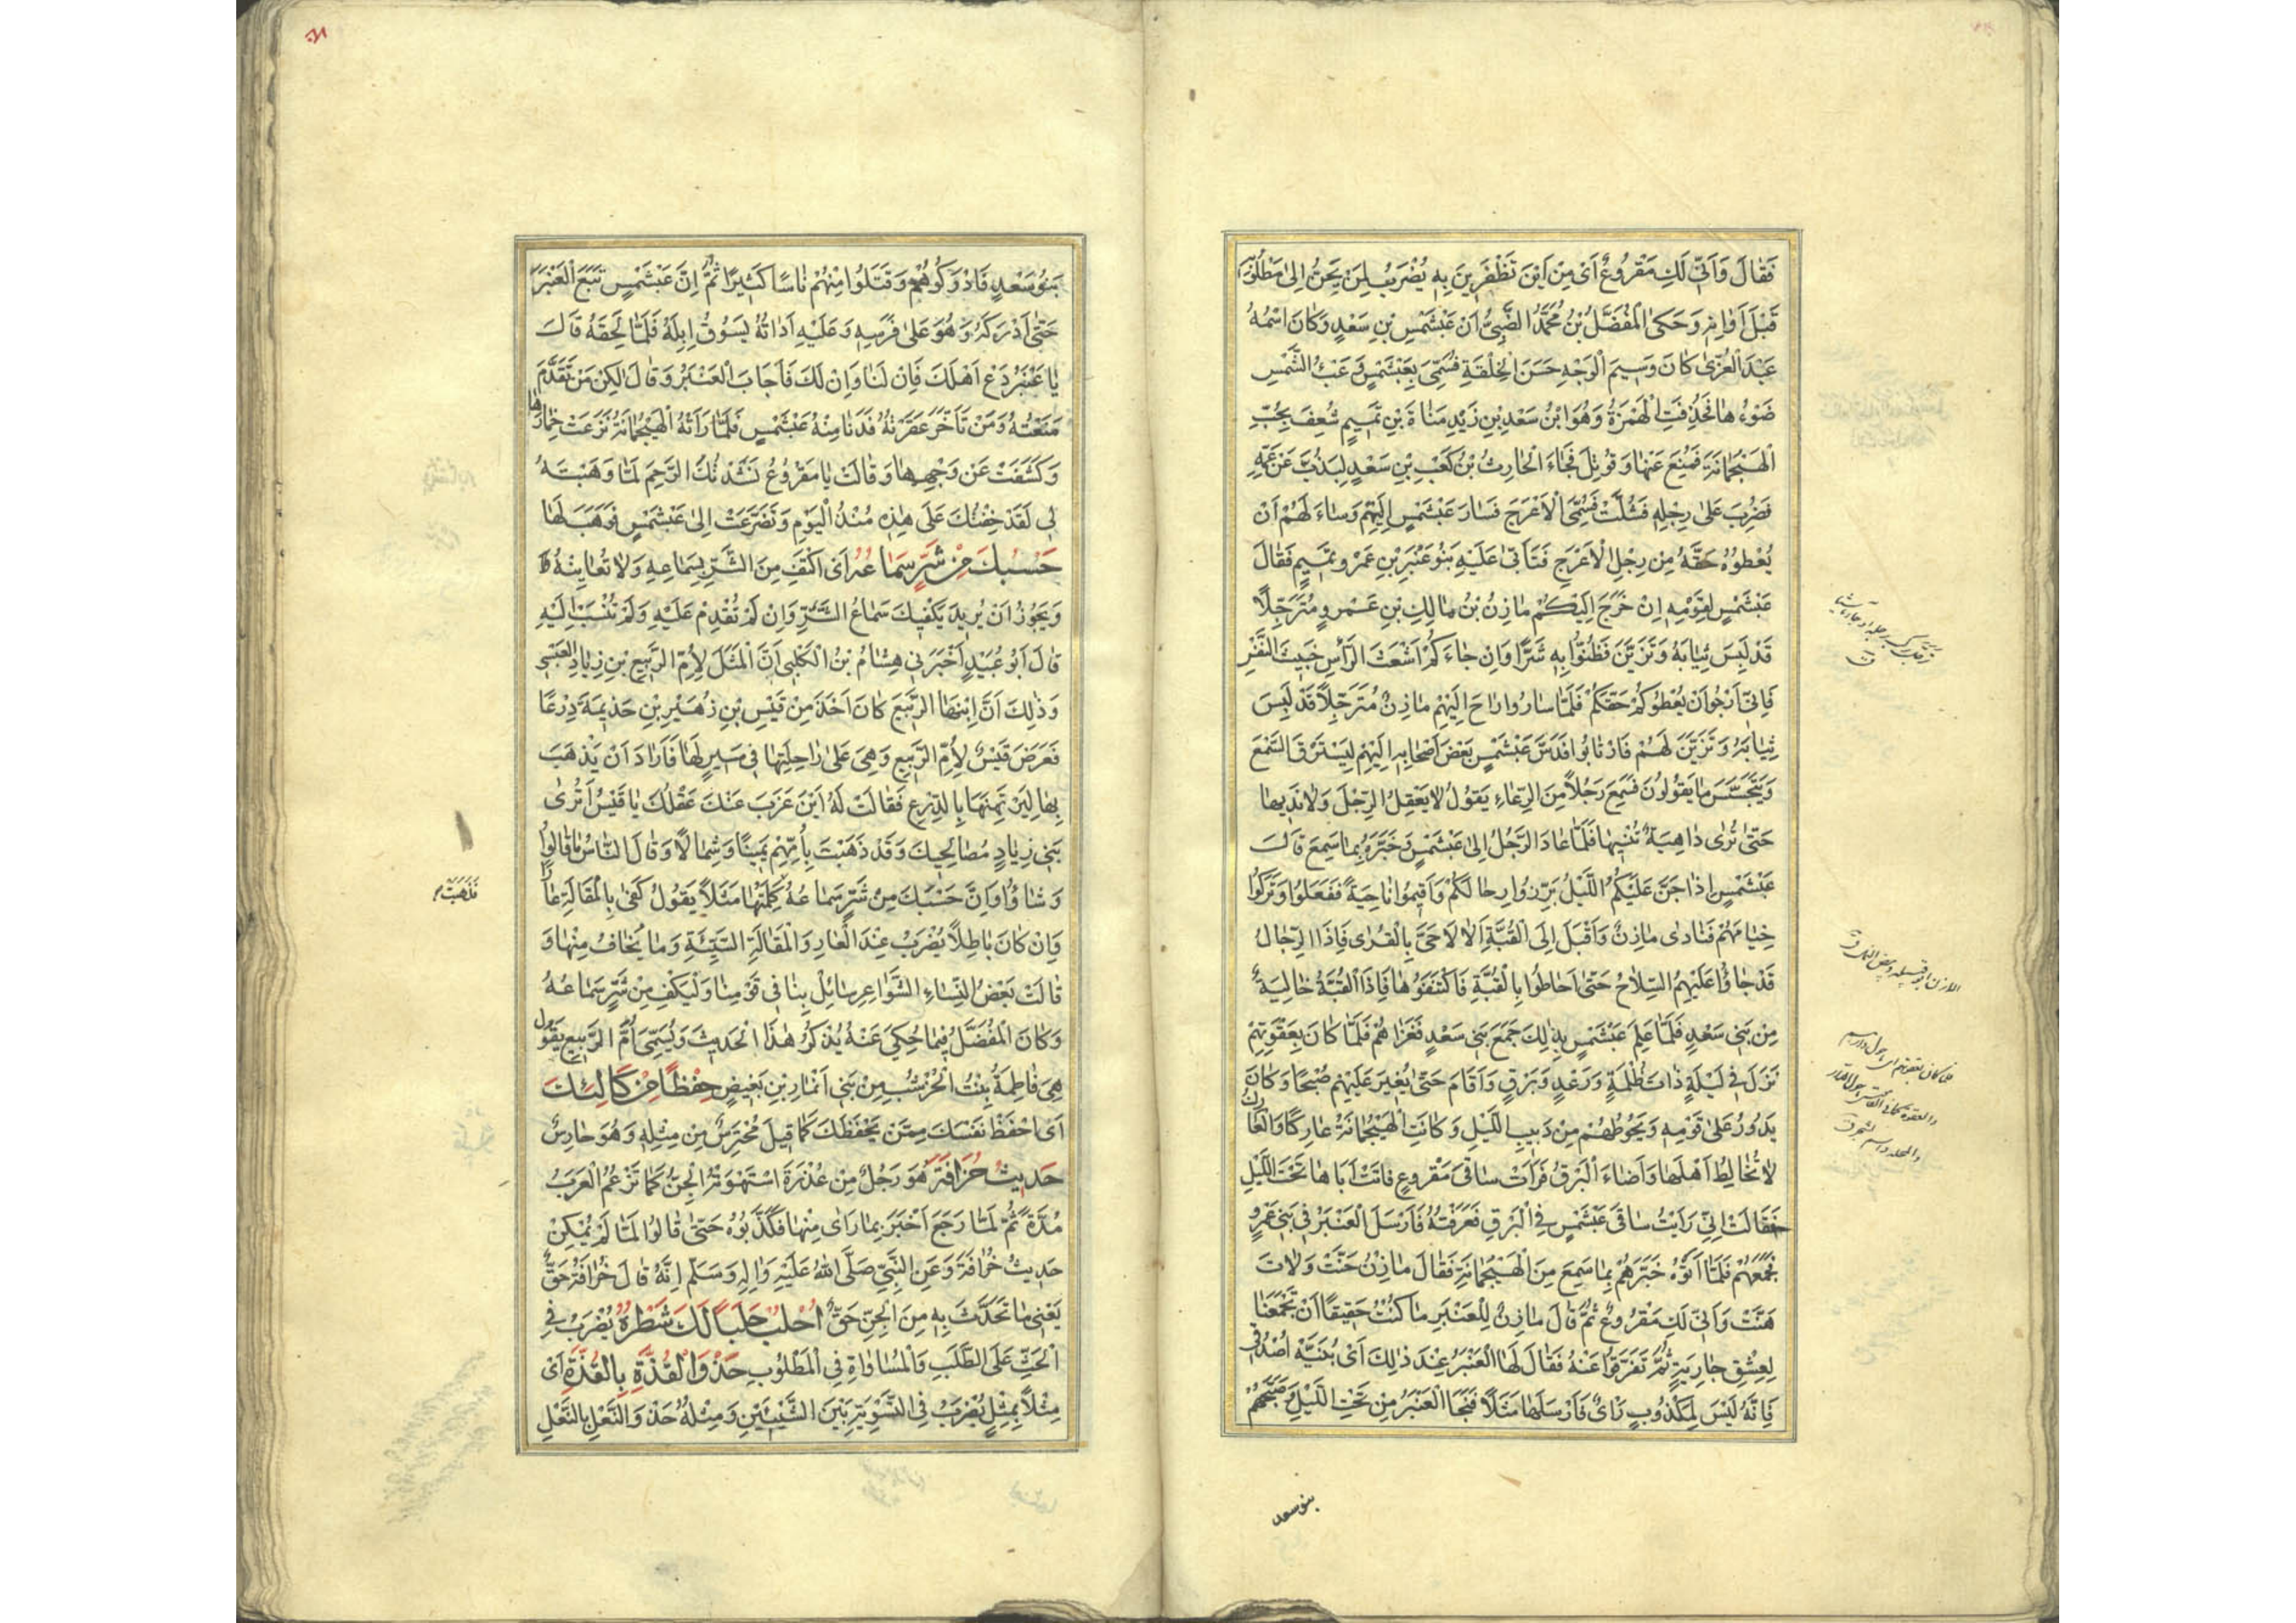 فَقَالَ وَاَنّٰى لَكِ مَقْرُوعٌ اَىْ مِنْ اَيْنَ تَظْفَرِينَ بِهِ يُضْرَبُ لِمَنْ يَحِنُّ اِلىٰ مَطْلُوبِهِ
قَبْلَ اَوَانِهِ وَحَكىٰ الْمُفَضَّلُ بْنُ مُحَمَّدٍ الضَّبِىُّ اَنْ عَبْشَمْسِ بْنِ سَعْدٍ وَكَانَ اسْمُهُ
عَبْدَ الْعُزّىٰ كَانَ وَسِيمَ الْوَجْهِ حَسَنَ الْخِلْقَةِ فَسُمِّىَ بِعَبْشَمْسٍ وَعَبْءُ الشَّمْسِ
ضَوْءُهَا فَحُذِفَتِ الْهَمْزَةُ وَهُوَ ابْنُ سَعْدِ بْنِ زَيْدِ مَنَاةَ بْنِ تَمِيمٍ شُعِفَ بِحُبِّ
الْهَيْجُمَانَةِ فَمُنِعَ عَنْهَا وَقُوتِلَ فَجَاءَ الْحَارِثُ بْنُ كَعْبِ بْنِ سَعْدٍ لِيَذُبَّ عَنْ عَمِّهِ
فَضُرِبَ عَلىٰ رِجْلِهِ فَشُلَّتْ فَسُمِّىَ الْاَعْرَجَ فَسَارَ عَبْشَمْسٍ اِلَيْهِمْ وَسَاءَلَهُمْ اَنْ
يُعْطُوْهُ حَقَّهُ مِنْ رِجْلِ الْاَعْرَجِ فَتَأَبّٰى عَلَيْهِ بَنُو عَنْبَرِ بْنِ عَمْرِو تَمِيمٍ فَقَالَ
عَبْشَمْسٍ لِقَوْمِهِ اِنْ خَرَجَ اِلَيْكُمْ مَازِنُ بْنُ مَالِكِ بْنِ عَمْرٍو مُتَرَجِّلًا
قَدْ لَبِسَ ثِيَابَهُ وَتَزَيَّنَ فَظُنُّوا بِهِ شَرًّا وَاِنْ جَاءَكُمْ اَشْعَثَ الرَّأْسِ خَبِيثَ النَّفْسِ
فَاِنِّىْ اَرْجُوا اَنْ يُعْطُوكُمْ حَقَّكُمْ فَلَمَّا سَارُوا رَاحَ اِلَيْهِمْ مَازِنٌ مُتَرَجِّلًا قَدْ لَبِسَ
ثِيَابَهُ وَتَزَيَّنَ لَهُمْ فَارْتَابُوا فَدَسَّ عَبْشَمْسٍ بَعْضَ اَصْحَابِهِ اِلَيْهِمْ لِيَسْتَرِقَ السَّمْعَ
وَيَتَجَسَّسَ مَا يَقُولُونَ فَسَمِعَ رَجُلًا مِنَ الرِّعَاءِ يَقُولُ لَا يَعْقِلُ الرِّجْلَ وَلَا نَدِيهَا
حَتّٰى تُرٰى دَاهِيَةٌ تُنْسِيهَا فَلَمَّا عَادَ الرَّجُلُ اِلىٰ عَبْشَمْسٍ وَخَبَّرَهُ بِمَا سَمِعَ قَالَ
عَبْشَمْسٍ اِذَا جَنَّ عَلَيْكُمُ اللَّيْلُ بَرِّزُوا رِحَالَكُمْ وَاَقِيمُوا نَاحِيَةً فَفَعَلُوا وَتَرَكُوا
خِيَامَهُمْ فَنَادٰى مَازِنٌ وَاَقْبَلَ اِلَى الْقُبَّةِ اَلَا لَا حَىَّ بِالْقُرٰى فَاِذَا الرِّجَالُ
قَدْ جَاؤُا عَلَيْهِمُ السِّلَاحُ حَتّٰى اَحَاطُوا بِالْقُبَّةِ فَاكْتَنَفُوهَا فَاِذَا الْقُبَّةُ خَالِيَةٌ
مِنْ بَنِى سَعْدٍ فَلَمَّا عَلِمَ عَبْشَمْسٍ بِذٰلِكَ جَمَعَ بَنِى سَعْدٍ فَغَزَاهُمْ فَلَمَّا كَانَ بِعَقْوَتِهِمْ
نَزَلَ فِى لَيْلَةٍ ذَاتِ ظُلْمَةٍ وَرَعْدٍ وَبَرْقٍ وَاَقَامَ حَتّٰى يُغِيرَ عَلَيْهِمْ صُبْحًا وَكَانَ
يَدُورُ عَلىٰ قَوْمِهِ وَيَحُوطُهُمْ مِنْ دَبِيبِ اللَّيْلِ وَكَانَتِ الْهَيْجُمَانَةُ عَارِكًا وَالْعَارِكُ
لَا تُخَالِطُ اَهْلَهَا وَاَضَاءَ الْبَرْقُ فَرَأَتْ سَاقَىْ مَقْرُوعٍ فَاتَتْ اَبَاهَا تَحْتَ اللَّيْلِ
فَقَالَتْ اِنِّى رَاَيْتُ سَاقَىْ عَبْشَمْسٍ فِى الْبَرْقِ فَعَرَفْتُهُ فَاَرْسَلَ الْعَنْبَرُ فِى بَنِى عَمْرٍو
فَجَمَعَهُمْ فَلَمَّا اَتَوْهُ خَبَّرَهُمْ بِمَا سَمِعَ مِنَ الْهَيْجُمَانَةِ فَقَالَ مَازِنٌ حَنَّتْ وَلَاتَ
هَنَّتْ وَاَنّٰى لَكِ مَقْرُوعٌ ثُمَّ قَالَ مَازِنٌ لِلْعَنْبَرِ مَا كُنْتُ حَقِيقًا اَنْ تَجْمَعَنَا
لِعِشْقِ جَارِيَةٍ ثُمَّ تَفَرَّقُوا عَنْهُ فَقَالَ لَهَا الْعَنْبَرُ عِنْدَ ذٰلِكَ اَىْ بُنَيَّهْ اُصْدُقِى
فَاِنَّهُ لَيْسَ لِمَكْذُوبٍ رَاىٌ فَاَرْسَلَهَا مَثَلًا فَنَجَا الْعَنْبَرُ مِنْ تَحْتِ اللَّيْلِ وَصَبَّحَهُمْ
بنو سعد
بَنُو سَعْدٍ فَاَدْرَكُوهُمْ وَقَتَلُوا مِنْهُمْ نَاسًا كَثِيرًا ثُمَّ اِنَّ عَبْشَمْسٍ تَبِعَ الْعَنْبَرَ
حَتّٰى اَدْرَكَهُ وَهُوَ عَلىٰ فَرَسِهِ وَعَلَيْهِ اَدَاتُهُ يَسُوقُ اِبِلَهُ فَلَمَّا لَحِقَهُ قَالَ
يَا عَنْبَرُ دَعْ اَهْلَكَ فَاِنَّ لَنَا وَاِنَّ لَكَ فَاَجَابَ الْعَنْبَرُ وَقَالَ لٰكِنْ مَنْ تَقَدَّمَ
مَنَعْتُهُ وَمَنْ تَأَخَّرَ عَقَرْتُهُ فَدَنَا مِنْهُ عَبْشَمْسٍ فَلَمَّا رَاَتْهُ الْهَيْجُمَانَةُ نَزَعَتْ خِمَارَهَا
وَكَشَفَتْ عَنْ وَجْهِهَا وَقَالَتْ يَا مَقْرُوعُ نَشَدْتُكَ الرَّحِمَ لَمَّا وَهَبْتَهُ
لِى لَقَدْ خِفْتُكَ عَلىٰ هٰذِهِ مُنْذُ الْيَوْمِ وَتَضَرَّعَتْ اِلىٰ عَبْشَمْسٍ فَوَهَبَهُ لَهَا
حَسْبُكَ مِنْ شَرٍّ سَمَاعُهُ اَىْ اكْتَفِ مِنَ الشَّرِّ بِسَمَاعِهِ وَلَا تُعَايِنْهُ
وَيَجُوزُ اَنْ يُرِيدَ يَكْفِيكَ سَمَاعُ الشَّرِّ وَاِنْ لَمْ تُقْدِمْ عَلَيْهِ وَلَمْ تُنْسَبْ اِلَيْهِ
قَالَ اَبُو عُبَيْدٍ اَخْبَرَنِى هِشَامُ بْنُ الْكَلْبِىِّ اَنَّ الْمَثَلَ لِاُمِّ الرَّبِيعِ بْنِ زِيَادٍ الْعَبْسِىِّ
وَذٰلِكَ اَنَّ اِبْنَهَا الرَّبِيعَ كَانَ اَخَذَ مِنْ قَيْسِ بْنِ زُهَيْرِ بْنِ حَذِيمَةَ دِرْعًا
فَعَرَضَ قَيْسٌ لِاُمِّ الرَّبِيعِ وَهِىَ عَلىٰ رَاحِلَتِهَا فِى مَسِيرٍ لَهَا فَاَرَادَ اَنْ يَذْهَبَ
بِهَا لِيَرْتَهِنَهَا بِالدِّرْعِ فَقَالَتْ لَهُ اَيْنَ عَزَبَ عَنْكَ عَقْلُكَ يَا قَيْسُ اَتُرٰى
بَنِى زِيَادٍ مُصَالِحِيكَ وَقَدْ ذَهَبْتَ بِاُمِّهِمْ يَمِينًا وَشِمَالًا وَقَالَ النَّاسُ مَا قَالُوا
وَشَاؤُا وَاِنَّ حَسْبَكَ مِنْ شَرٍّ سَمَاعُهُ كَلِمَتُهَا مَثَلًا يَقُولُ كَفىٰ بِالْمَقَالَةِ عَارًا
وَاِنْ كَانَ بَاطِلًا يُضْرَبُ عِنْدَ الْعَارِ وَالْمَقَالَةِ السَّيِّئَةِ وَمَا يُخَافُ مِنْهَا وَ
قَالَتْ بَعْضُ النِّسَاءِ الشَّوَاعِرِ سَائِلْ بِنَا فِى قَوْمِنَا وَلْيَكْفِ مِنْ شَرٍّ سَمَاعُهُ
وَكَانَ الْمُفَضَّلُ فِيمَا حُكِىَ عَنْهُ يُذْكَرُ هٰذَا الْحَدِيثَ وَيُسَمِّى اُمَّ الرَّبِيعِ يَقُولُ
هِىَ فَاطِمَةُ بِنْتُ الْخُرْشُبِ مِنْ بَنِى اَنْمَارِ بْنِ بَغِيضٍ حِفْظًا مِنْ كَالِئِكَ
اَىْ احْفَظْ نَفْسَكَ مِمَّنْ يَحْفَظُكَ كَمَا قِيلَ مُحْتَرِسٌ مِنْ مِثْلِهِ وَهُوَ حَارِسٌ
حَدِيثُ خُرَافَةَ هُوَ رَجُلٌ مِنْ عُذْرَةَ اسْتَهْوَتْهُ الْجِنُّ كَمَا تَزْعُمُ الْعَرَبُ
مُدَّةً ثُمَّ لَمَّا رَجَعَ اَخْبَرَ بِمَا رَاٰى مِنْهَا فَكَذَّبُوهُ حَتّٰى قَالُوا لِمَا لَمْ يُمْكِنْ
حَدِيثُ خُرَافَةَ وَعَنِ النَّبِىِّ صَلَّى اللّٰهُ عَلَيْهِ وَاٰلِهِ وَسَلَّمَ اِنَّهُ قَالَ خُرَافَةُ حَقٌّ
يَعْنِى مَا تَحَدَّثَ بِهِ مِنَ الْجِنِّ حَقٌّ اُحْلُبْ حَلَبًا لَكَ شَطْرُهُ يُضْرَبُ فِى
الْحَثِّ عَلَى الطَّلَبِ وَالْمُسَاوَاةِ فِى الْمَطْلُوبِ حَذْوَ الْقُذَّةِ بِالْقُذَّةِ اَىْ
مِثْلًا بِمِثْلٍ يُضْرَبُ فِى التَّسْوِيَةِ بَيْنَ الشَّيْئَيْنِ وَمِثْلُهُ حَذْوَ النَّعْلِ بِالنَّعْلِ
فَذَهَبَتْ